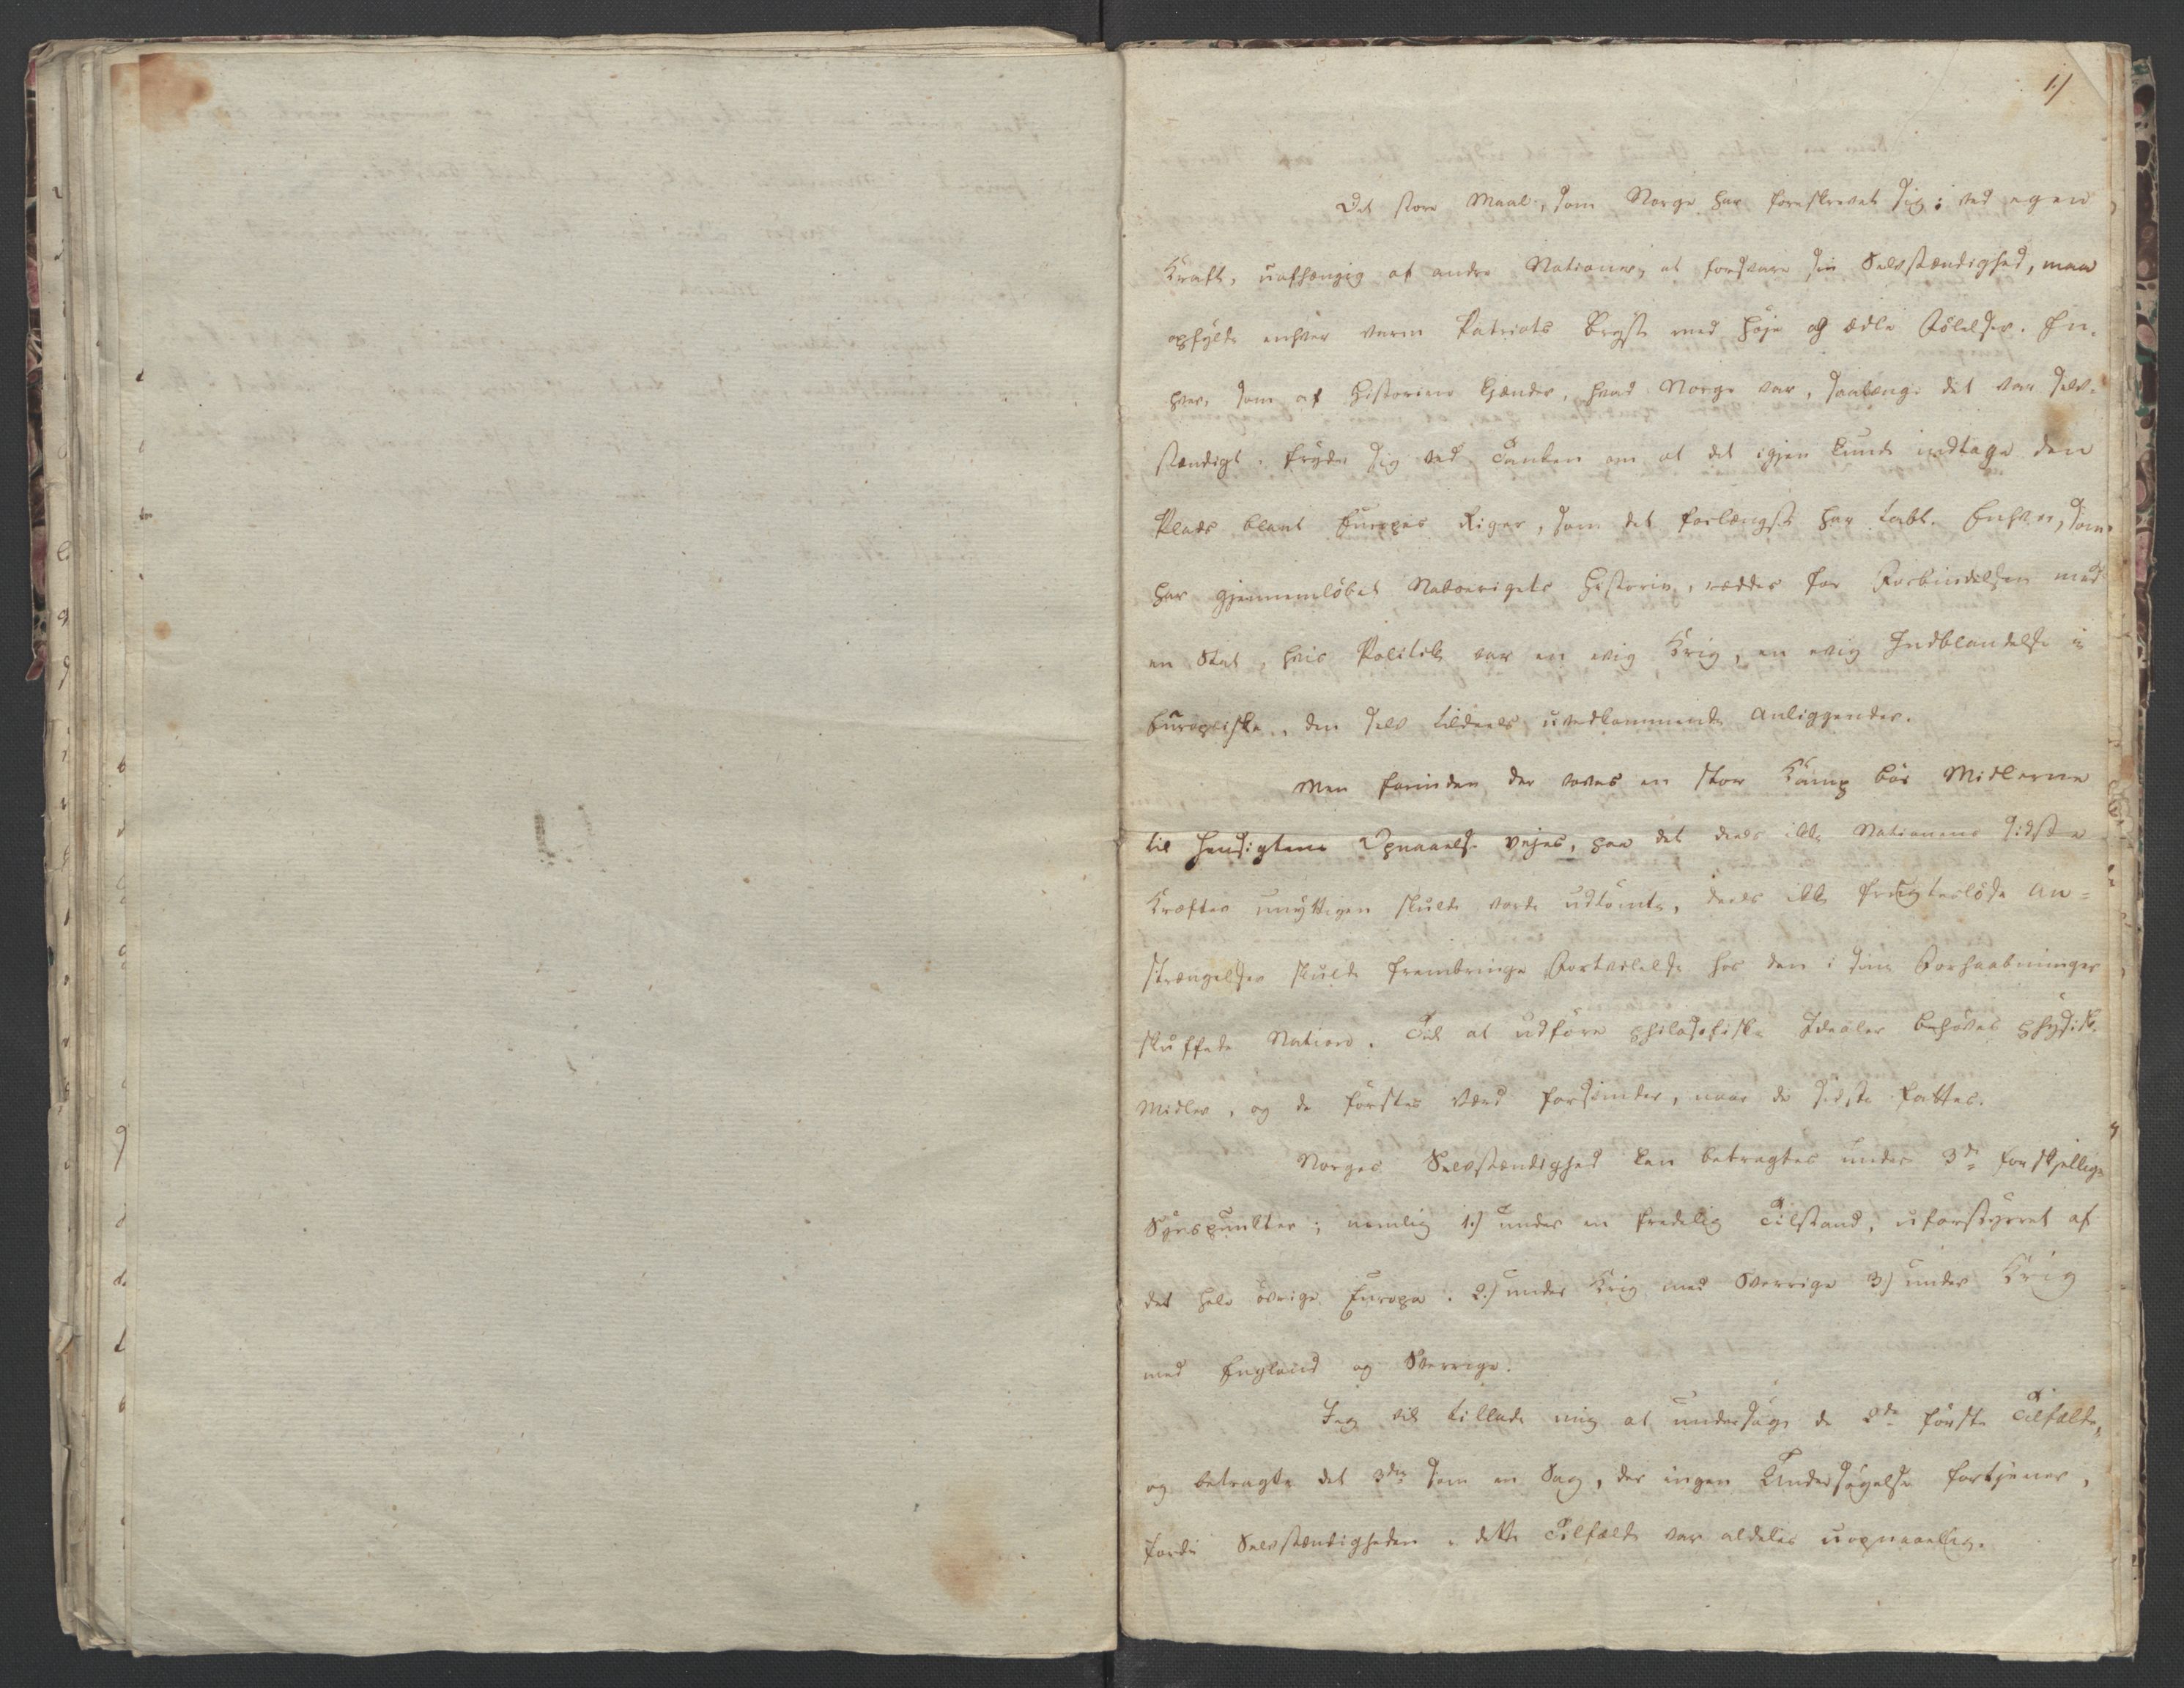 1.)
Det store Maal, som Norge har foreskrevet sig; ved egen
Kraft, uafhængig af andre Nationer, at forsvare sin Selvstændighed, maa
opfylde enhver varm Patriots Bryst med høje og ædle Følelser. En-
hver, som af Historien kjender, hvad Norge var, saalænge det var selv-
stændigt, fryder sig ved Tanken om at det igjen kunde indtage den
Plads blant Europas Riger, som det forlængst har tabt. Enhver, som
har gjennemløbet Naboerigets Historie, rædder for Forbindelsen med
en Stat, hvis Politik var en evig Krig, en evig Indblandelse i
Europæiske, den selv tildeels uvedkommende Anliggender.
Men forinden der voves en stor Kamp bör Midlerne
til Hensigtens Opnaaelse vejes, paa det deels ikke Nationens sidste
Kræfter unyttigen skulde vorde udtömte, deels ikke frugteslöse An=
strængelser skulde frembringe Fortvilelse hos den i sine Forhaabninger
skuffede Nation. Til at udföre philosofiske Idealer behöves physiske
Midler, og de förstes Værd forsvinder, naar de sidste fattes.
Norges Selvstændighed kan betragtes under 3de forskjellige
Synspunkter; nemlig 1.) under en fredelig Tilstand, uforstyrret af
det hele övrige Europa. 2.) under Krig med Sverrige 3.) under Krig
med England og Sverrige.
Jeg vil tillade mig at undersöge de 2de förste Tilfælde,
og betragte det 3die som en Sag, der ingen Undersögelse fortjener,
fordi Selvstændigheden i dette Tilfælde var aldeles uopnaaelig.